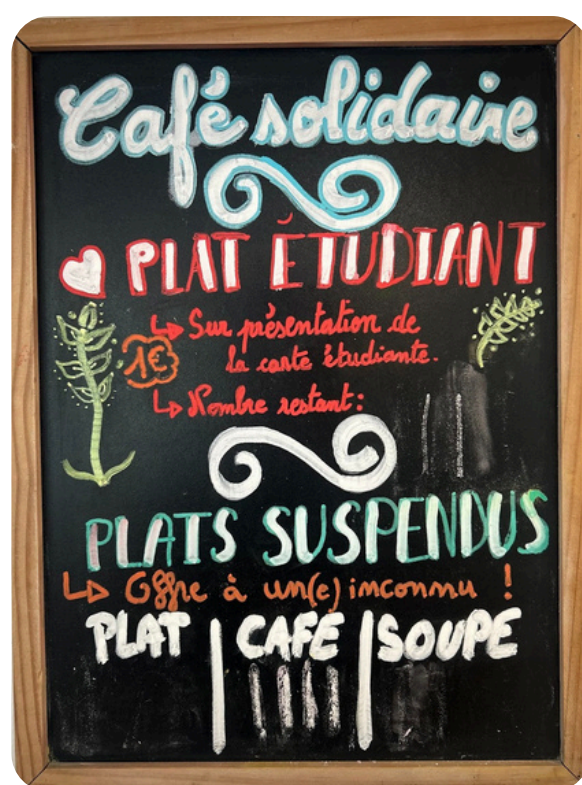 Café solidaire
PLAT ÉTUDIANT
Sur présentation de
1€ la carte étudiante.
Nombre restant:
PLATS SUSPENDUS
Offre à un(e) inconnu !
PLAT | CAFE | SOUPE